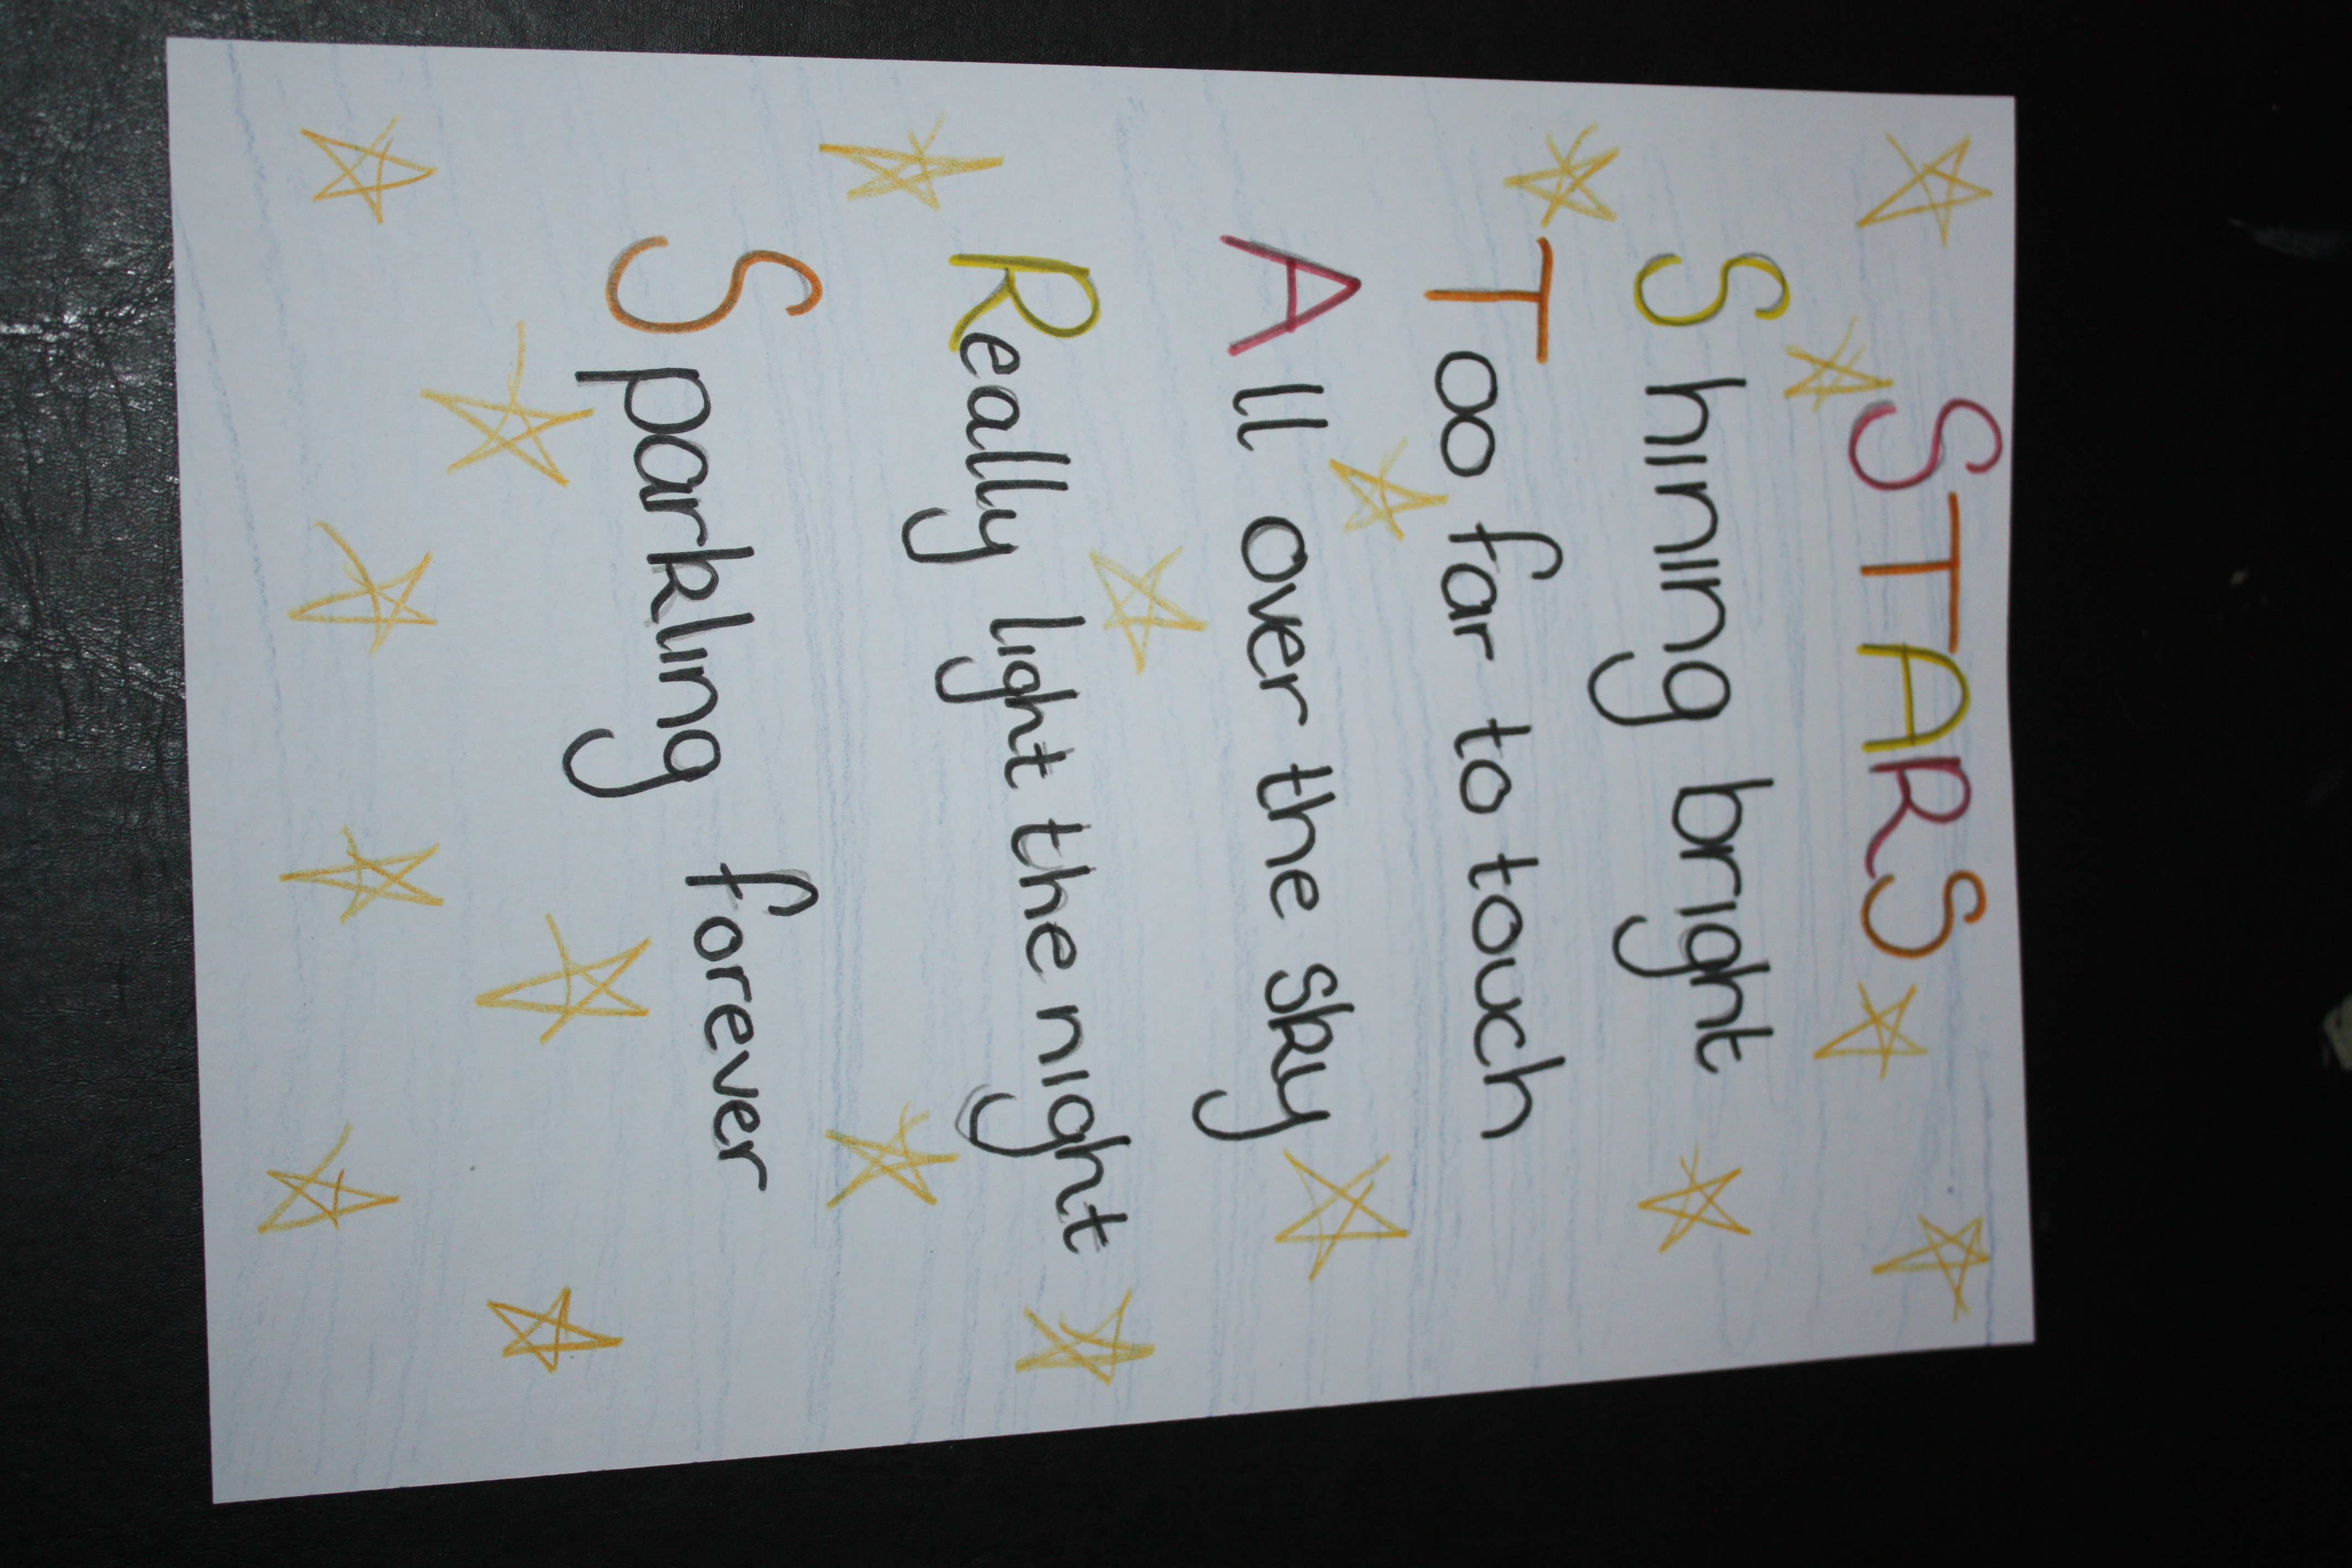 STARS
Shining bright
Too far to touch
All over the sky
Really light the night
Sparkling forever